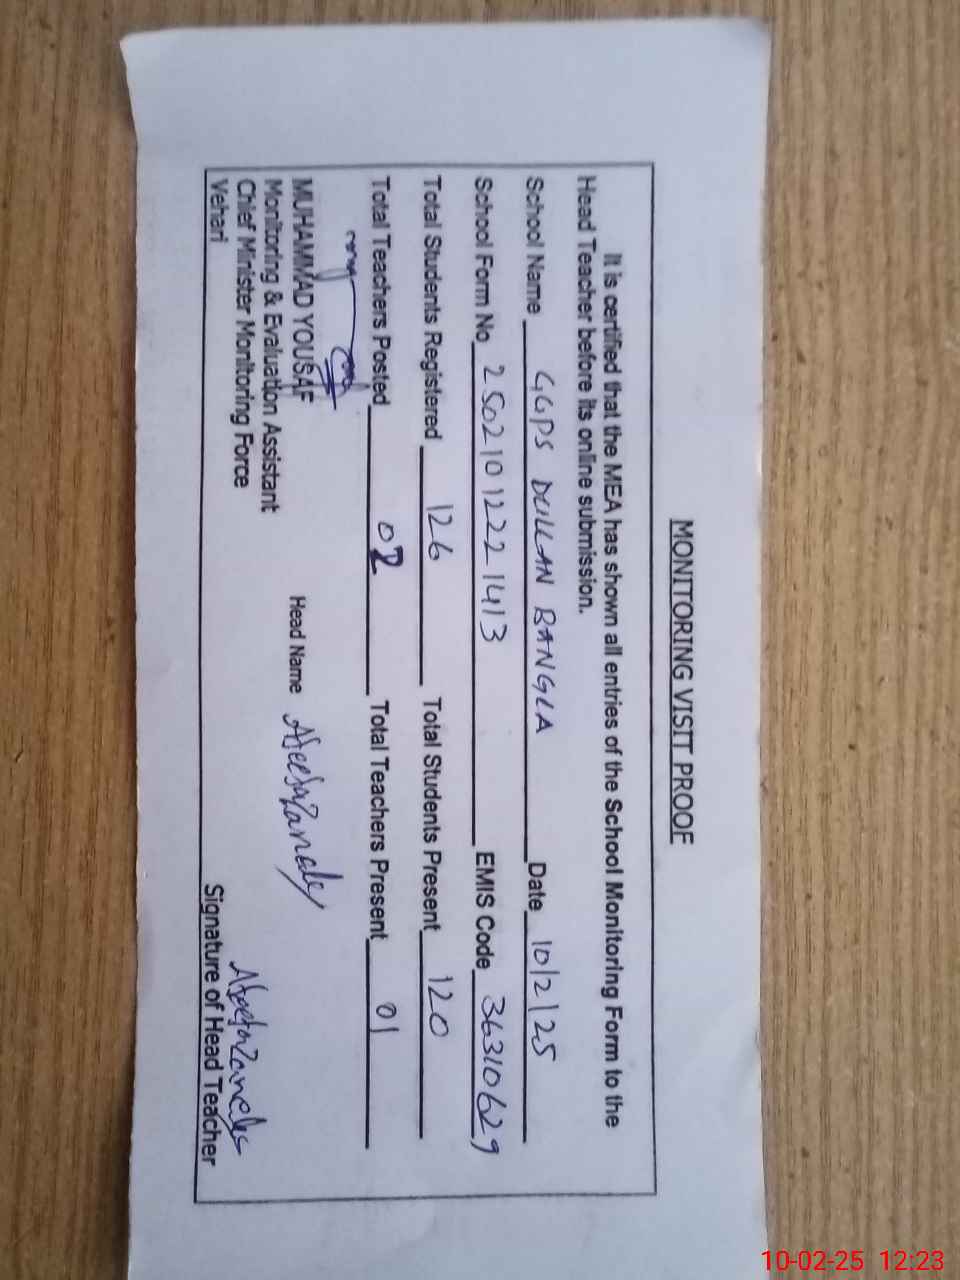 MONITORING VISIT PROOF
It is certified that the MEA has shown all entries of the School Monitoring Form to the
Head Teacher before its online submission.
School Name GGPS DULLAN BANGLA Date 10/2/25
School Form No 250210122221413 EMIS Code 36310629
Total Students Registered 126 Total Students Present 120
Total Teachers Posted 02 Total Teachers Present 01
MUHAMMAD YOUSAF Head Name
Monitoring & Evaluation Assistant
Chief Minister Monitoring Force
Vehari
Signature of Head Teacher
10-02-25 12:23